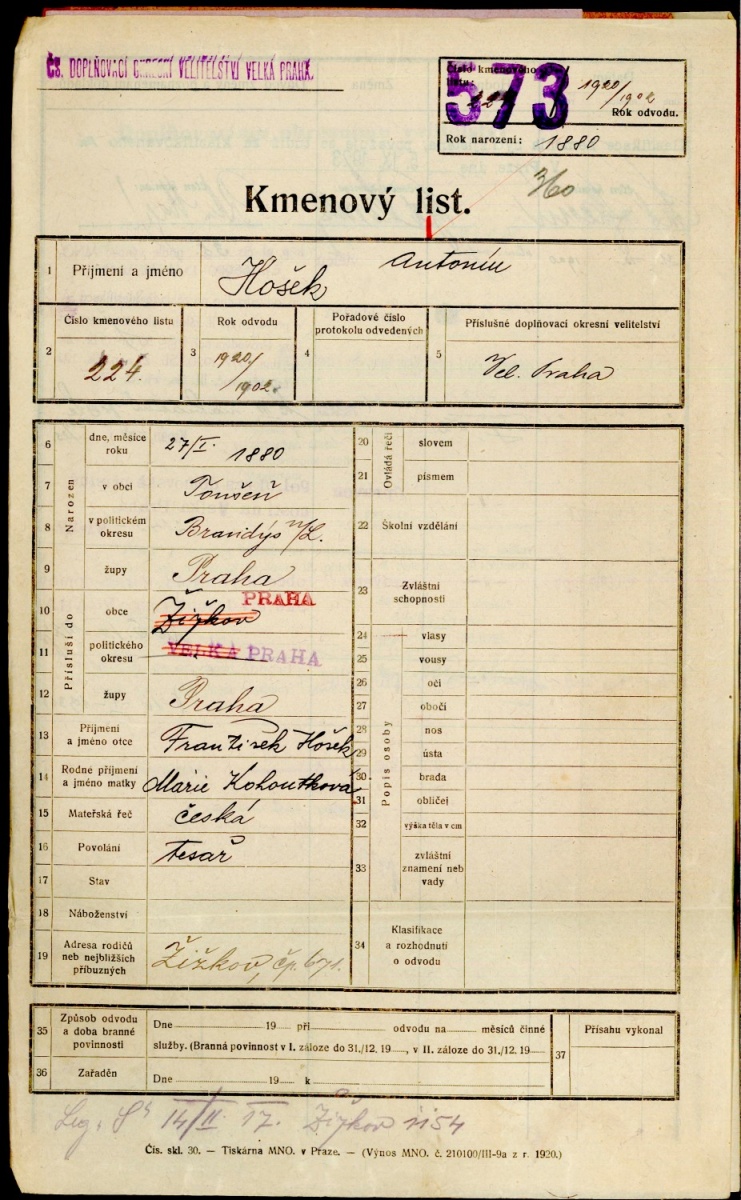 ČS. DOPLŇOVACÍ OKRESNÍ VELITELSTVÍ VELKÁ PRAHA.
Číslo kmenového listu:
573
224
1920/1902
Rok odvodu.
Rok narození: 1880
Kmenový list.
1 Příjmení a jméno Hošek Antonín
2 Číslo kmenového listu 224.
3 Rok odvodu 1920/1902.
4 Pořadové číslo protokolu odvedených
5 Příslušné doplňovací okresní velitelství Vel. Praha
Narozen
6 dne, měsíce roku 27/I. 1880
7 v obci Toušeň
8 v politickém okresu Brandýs n/L.
9 župy Praha
Přísluší do
10 obce Žižkov PRAHA
11 politického okresu VELKÁ PRAHA
12 župy Praha
13 Příjmení a jméno otce František Hošek
14 Rodné příjmení a jméno matky Marie Kohoutková
15 Mateřská řeč česká
16 Povolání tesař
17 Stav
18 Náboženství
19 Adresa rodičů neb nejbližších příbuzných Žižkov, čp. 671.
Ovládá řeči
20 slovem
21 písmem
22 Školní vzdělání
23 Zvláštní schopnosti
Popis osoby
24 vlasy
25 vousy
26 oči
27 obočí
28 nos
29 ústa
30 brada
31 obličej
32 výška těla v cm
33 zvláštní znamení neb vady
34 Klasifikace a rozhodnutí o odvodu
35 Způsob odvodu a doba branné povinnosti
Dne 19 při odvodu na měsíců činné
služby. (Branná povinnost v I. záloze do 31./12. 19 , v II. záloze do 31./12. 19
36 Zařaděn Dne 19 k
37 Přísahu vykonal
14/II. 17. Žižkov 1154
Čís. skl. 30. — Tiskárna MNO. v Praze. — (Výnos MNO. č. 210100/III-9a z r. 1920.)